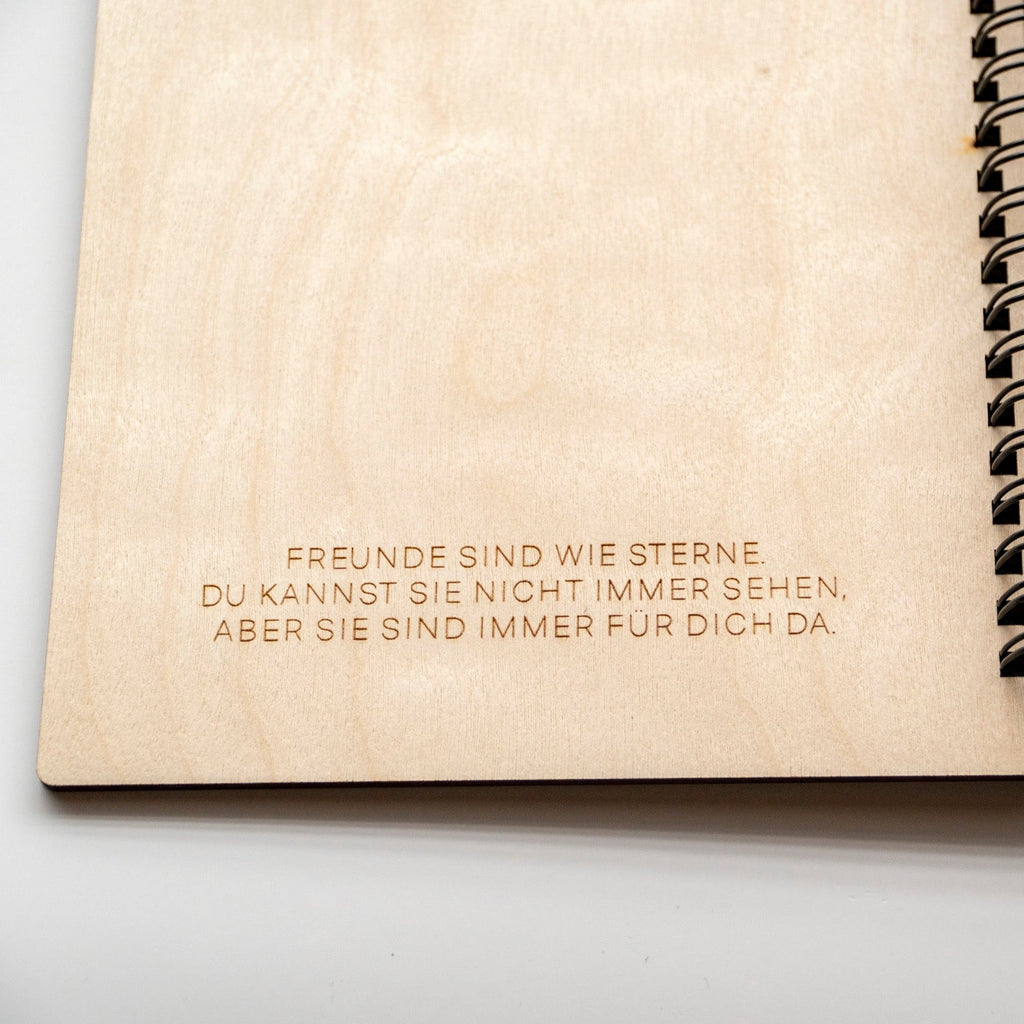 FREUNDE SIND WIE STERNE.
DU KANNST SIE NICHT IMMER SEHEN,
ABER SIE SIND IMMER FÜR DICH DA.